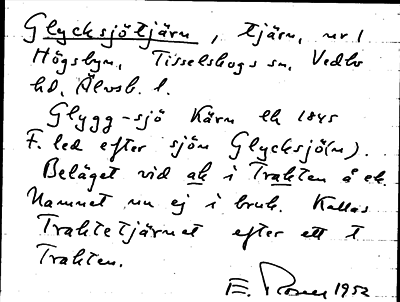 Glycksjötjärn, tjärn, nr 1
Högsbyn, Tisselskogs sn, Vedbo
hd, Älvsb. l.
Glygg-sjö Kärn Ek 1845
F. led efter sjön Glycksjö(n).
Beläget vid ak i Trakten å ek.
Namnet nu ej i bruk. Kallas
Traktetjärnet efter ett t
Trakten.
E. 1952